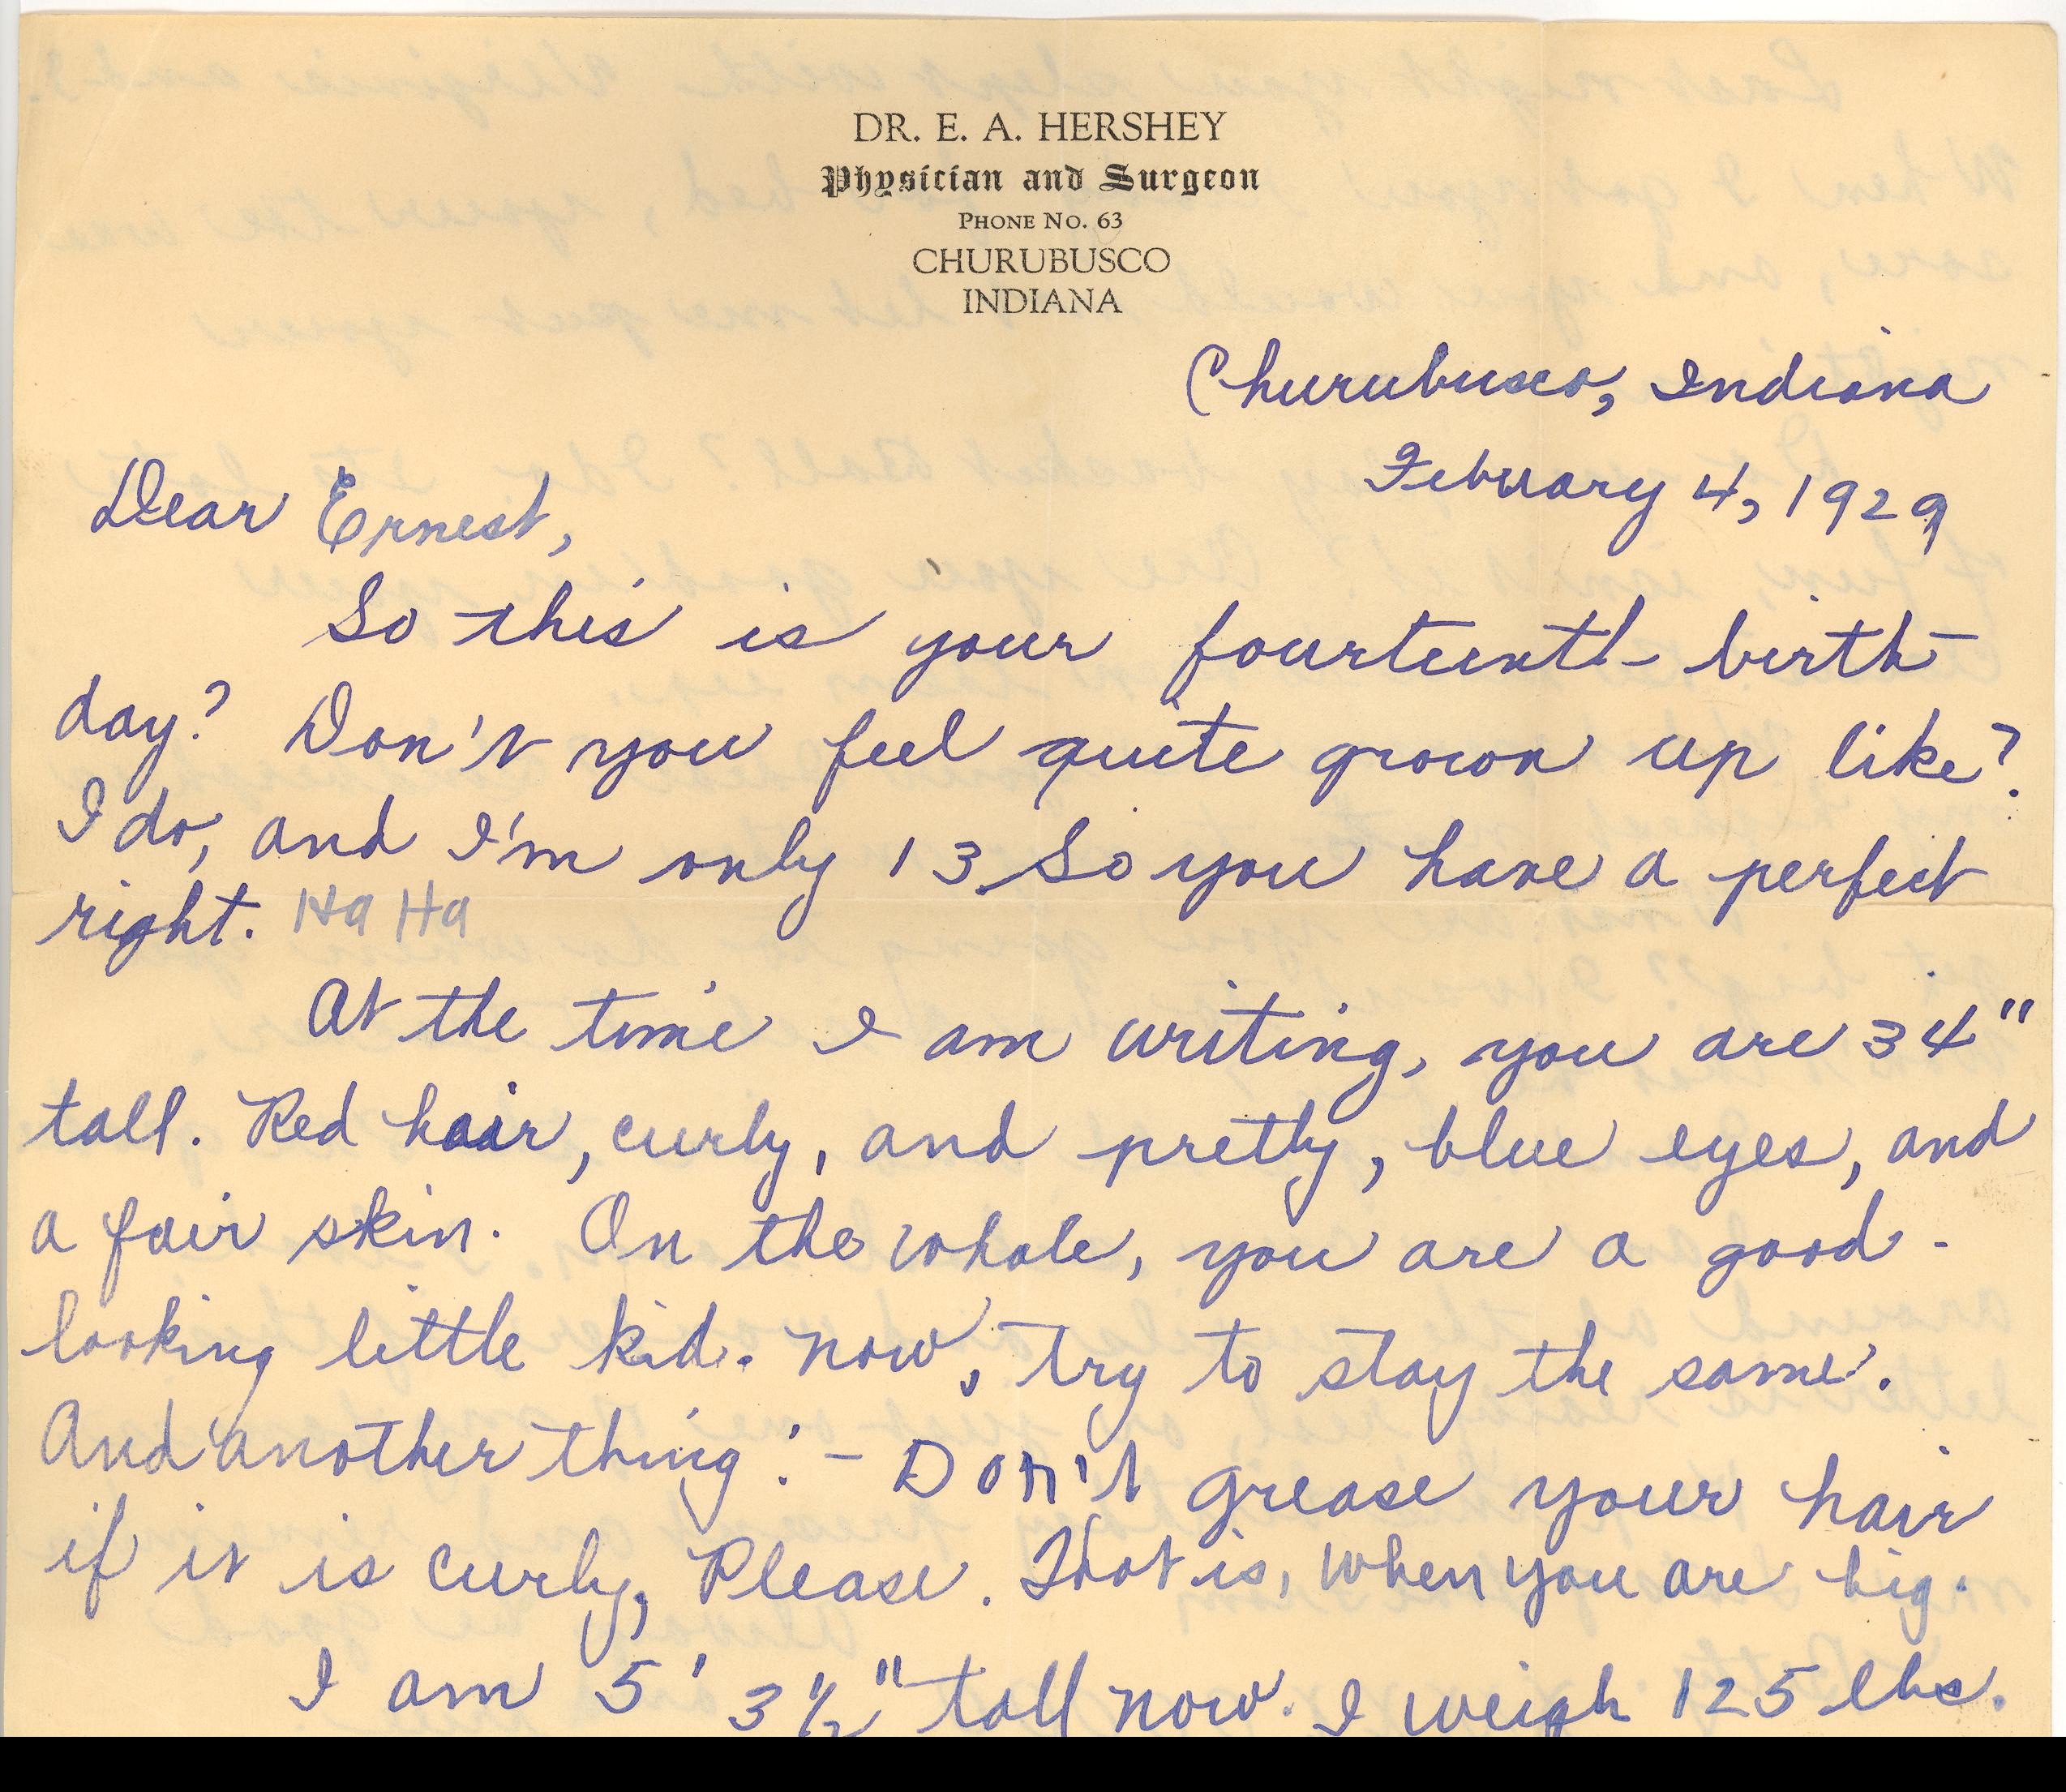 DR. E. A. HERSHEY
Physician and Surgeon
PHONE NO. 63
CHURUBUSCO
INDIANA
Churubusco, Indiana
February 4, 1929
Dear Ernest,
So this is your fourteenth birth-
day? Don't you feel quite grown up like?
I do, and I'm only 13. So you have a perfect
right. Ha Ha
At the time I am writing, you are 34"
tall. Red hair, curly, and pretty, blue eyes, and
a fair skin. On the whole, you are a good-
looking little kid. Now, try to stay the same.
And another thing:- Don't grease your hair
if it is curly, Please. That is, when you are big.
I am 5' 3½" tall now. I weigh 125 lbs.